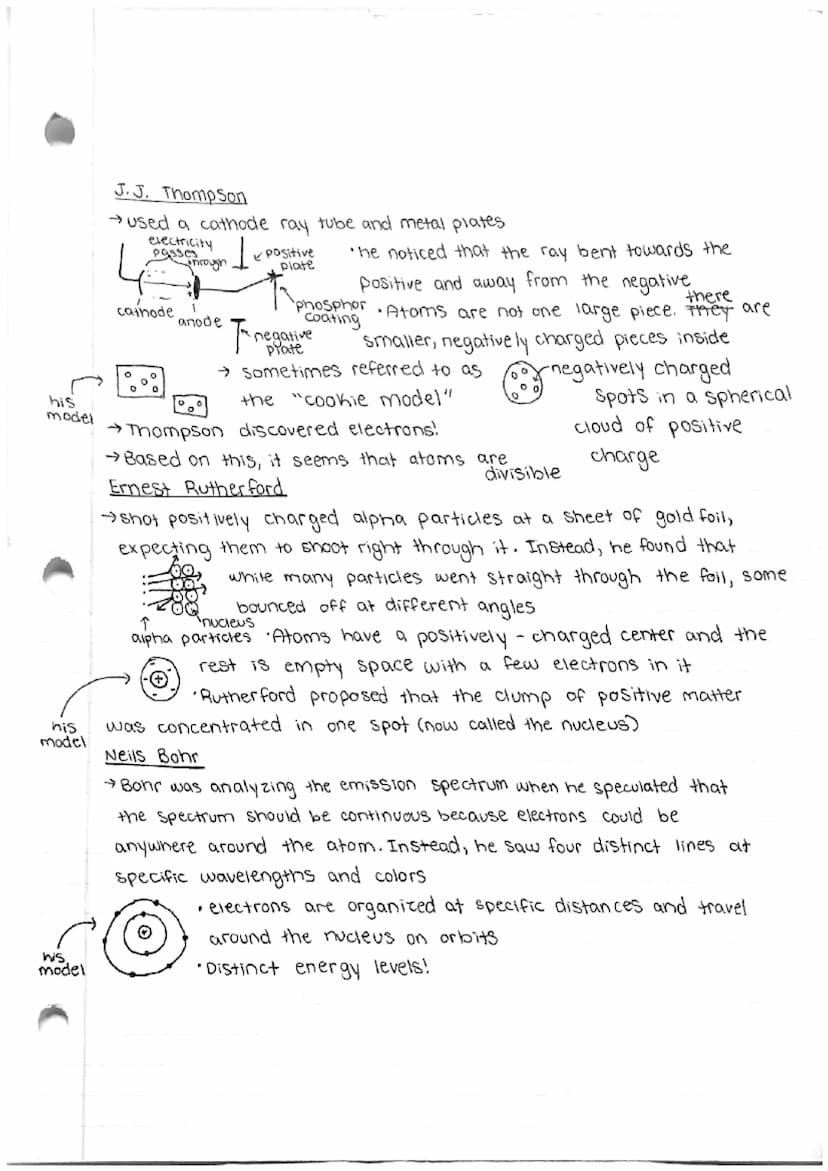 J.J. Thompson
→ used a cathode ray tube and metal plates
electricity
passes
through
positive
plate
cathode
anode
phosphor
coating
negative
plate
• he noticed that the ray bent towards the
positive and away from the negative
• Atoms are not one large piece. They there are
smaller, negatively charged pieces inside
his
model
→ sometimes referred to as
the "cookie model"
negatively charged
spots in a spherical
cloud of positive
charge
→ Thompson discovered electrons!
→ Based on this, it seems that atoms are
divisible
Ernest Rutherford
→ shot positively charged alpha particles at a sheet of gold foil,
expecting them to shoot right through it. Instead, he found that
while many particles went straight through the foil, some
bounced off at different angles
nucleus
alpha particles
• Atoms have a positively-charged center and the
rest is empty space with a few electrons in it
• Rutherford proposed that the clump of positive matter
was concentrated in one spot (now called the nucleus)
his
model
Neils Bohr
→ Bohr was analyzing the emission spectrum when he speculated that
the spectrum should be continuous because electrons could be
anywhere around the atom. Instead, he saw four distinct lines at
specific wavelengths and colors
• electrons are organized at specific distances and travel
around the nucleus on orbits
• Distinct energy levels!
his
model